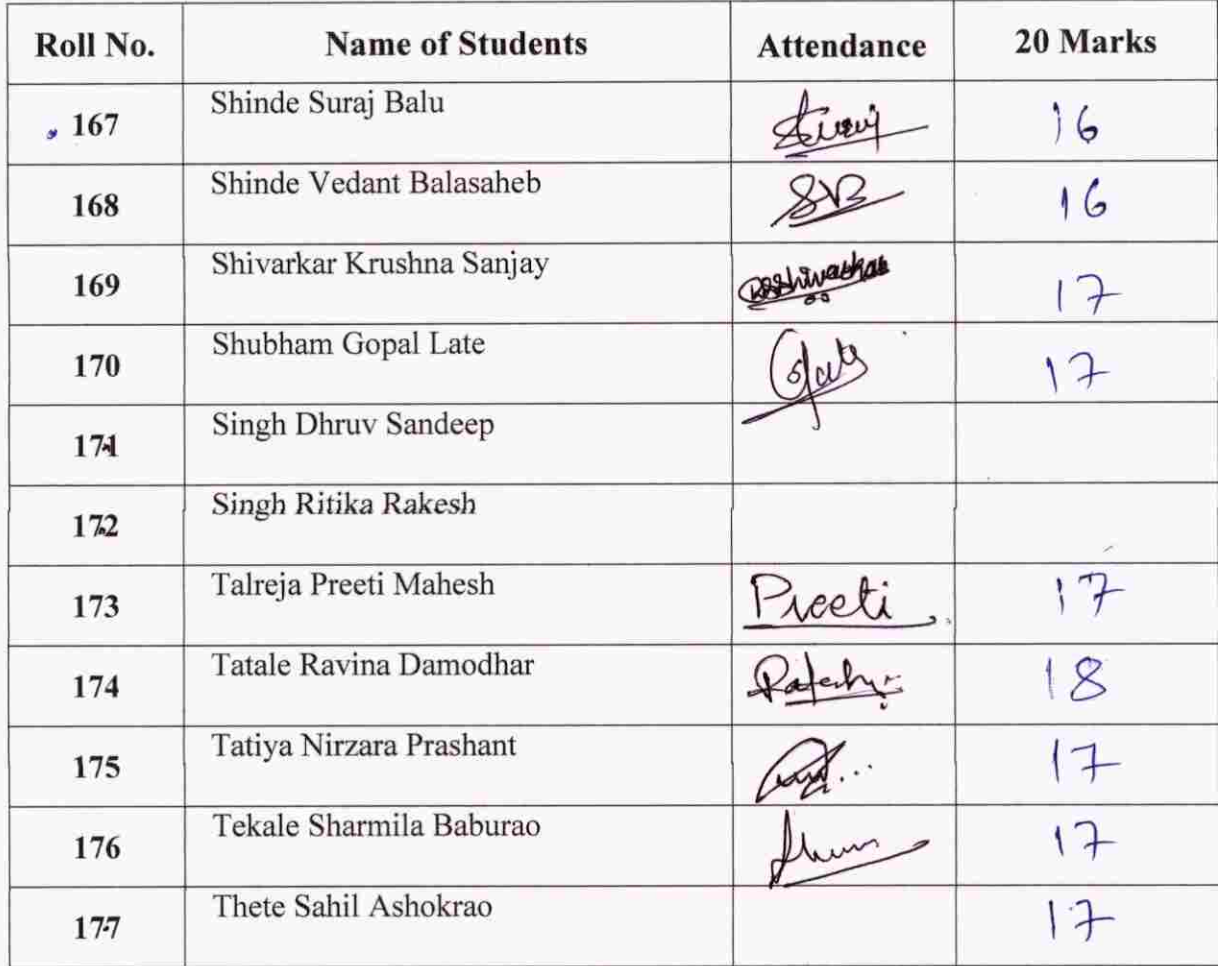 Roll No. Name of Students Attendance 20 Marks
167 Shinde Suraj Balu Suraj 16
168 Shinde Vedant Balasaheb SVB 16
169 Shivarkar Krushna Sanjay 17
170 Shubham Gopal Late 17
171 Singh Dhruv Sandeep
172 Singh Ritika Rakesh
173 Talreja Preeti Mahesh Preeti 17
174 Tatale Ravina Damodhar 18
175 Tatiya Nirzara Prashant 17
176 Tekale Sharmila Baburao 17
177 Thete Sahil Ashokrao 17